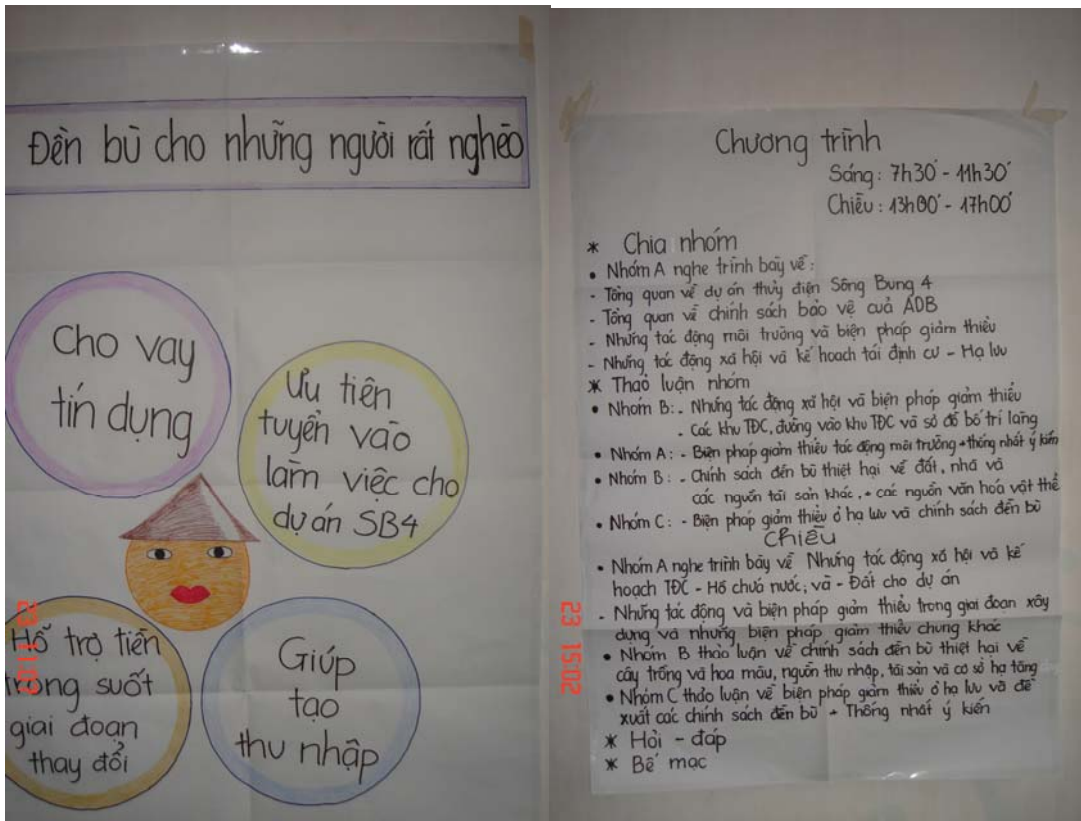 Đền bù cho những người rất nghèo
Cho vay
tín dụng
Ưu tiên
tuyển vào
làm việc cho
dự án SB4
Hỗ trợ tiền
trong suốt
giai đoạn
thay đổi
Giúp
tạo
thu nhập
23 11:09
Chương trình
Sáng: 7h30' - 11h30'
Chiều: 13h00' - 17h00'
* Chia nhóm
• Nhóm A nghe trình bày về:
- Tổng quan về dự án thủy điện Sông Bung 4
- Tổng quan về chính sách bảo vệ cuả ADB
- Những tác động môi trường và biện pháp giảm thiểu
- Những tác động xã hội và kế hoạch tái định cư - Hạ lưu
* Thaỏ luận nhóm
• Nhóm B: - Những tác động xã hội và biện pháp giảm thiểu
- Các khu TĐC, đường vào khu TĐC và sơ đồ bố trí làng
• Nhóm A: - Biện pháp giảm thiểu tác động môi trường + thống nhất ý kiến
• Nhóm B: - Chính sách đền bù thiệt hại về đất, nhà và
các nguồn tài sản khác, + các nguồn văn hoá vật thể
• Nhóm C: - Biện pháp giảm thiểu ở hạ lưu và chính sách đền bù
Chiều
• Nhóm A nghe trình bày về Những tác động xã hội và kế
hoạch TĐC - Hồ chứa nước; và - Đất cho dự án
- Những tác động và biện pháp giảm thiểu trong giai đoạn xây
dựng và những biện pháp giảm thiểu chung khác
• Nhóm B thảo luận về chính sách đền bù thiệt hại về
cây trồng và hoa màu, nguồn thu nhập, tài sản và cơ sở hạ tầng
• Nhóm C thảo luận về biện pháp giảm thiểu ở hạ lưu và đề
xuất các chính sách đền bù + Thống nhất ý kiến
* Hỏi - đáp
* Bế mạc
23 15:02